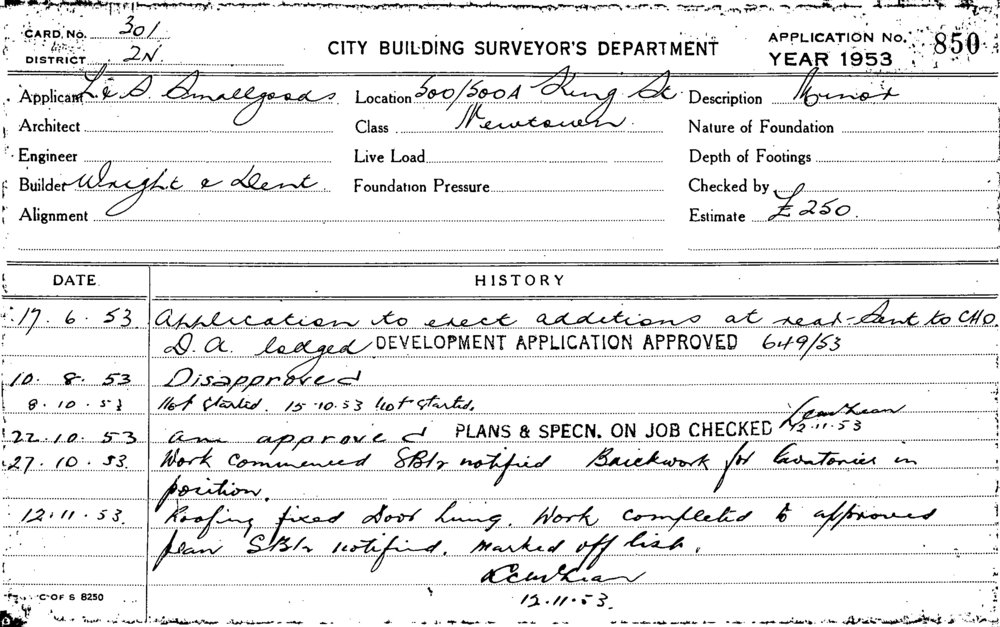 CARD. No. 301
DISTRICT 2N.
CITY BUILDING SURVEYOR'S DEPARTMENT
APPLICATION No. 850
YEAR 1953
Applicant L & S. Smallgoods Location 500/500A King St. Description Minor
Architect Class Newtown. Nature of Foundation
Engineer Live Load Depth of Footings
Builder Wright & Dent. Foundation Pressure Checked by
Alignment Estimate £250.
DATE HISTORY
17. 6. 53 Application to erect additions at rear - Sent to CHO.
D.A. lodged DEVELOPMENT APPLICATION APPROVED 649/53
10. 8. 53 Disapproved
8. 10. 53 Not started. 15-10.53 Not started.
22. 10. 53 am approved PLANS & SPECN. ON JOB CHECKED 12.11.53
27. 10. 53. Work commenced notified Brickwork for lavatories in
position.
12. 11. 53. Roofing fixed Door hung. Work completed to approved
plan notified. Marked off list.
12.11.53.
C OF S 8250